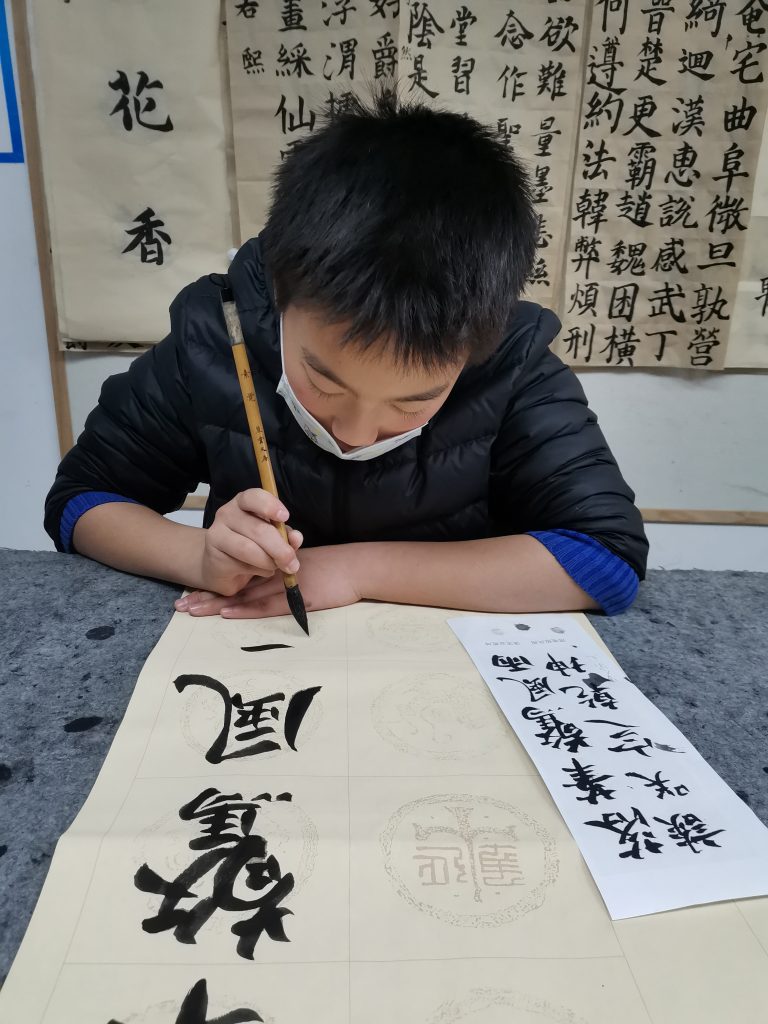 花香
奄宅曲阜微旦孰營
綺迴漢惠說感武丁
晉楚更霸趙魏困橫
何遵約法韓弊煩刑
欲難量墨悲絲
念作聖
堂習
陰是
好爵
浮渭
畫綵仙
右
熙
落筆驚風雨
談咲定乾坤
驚風一